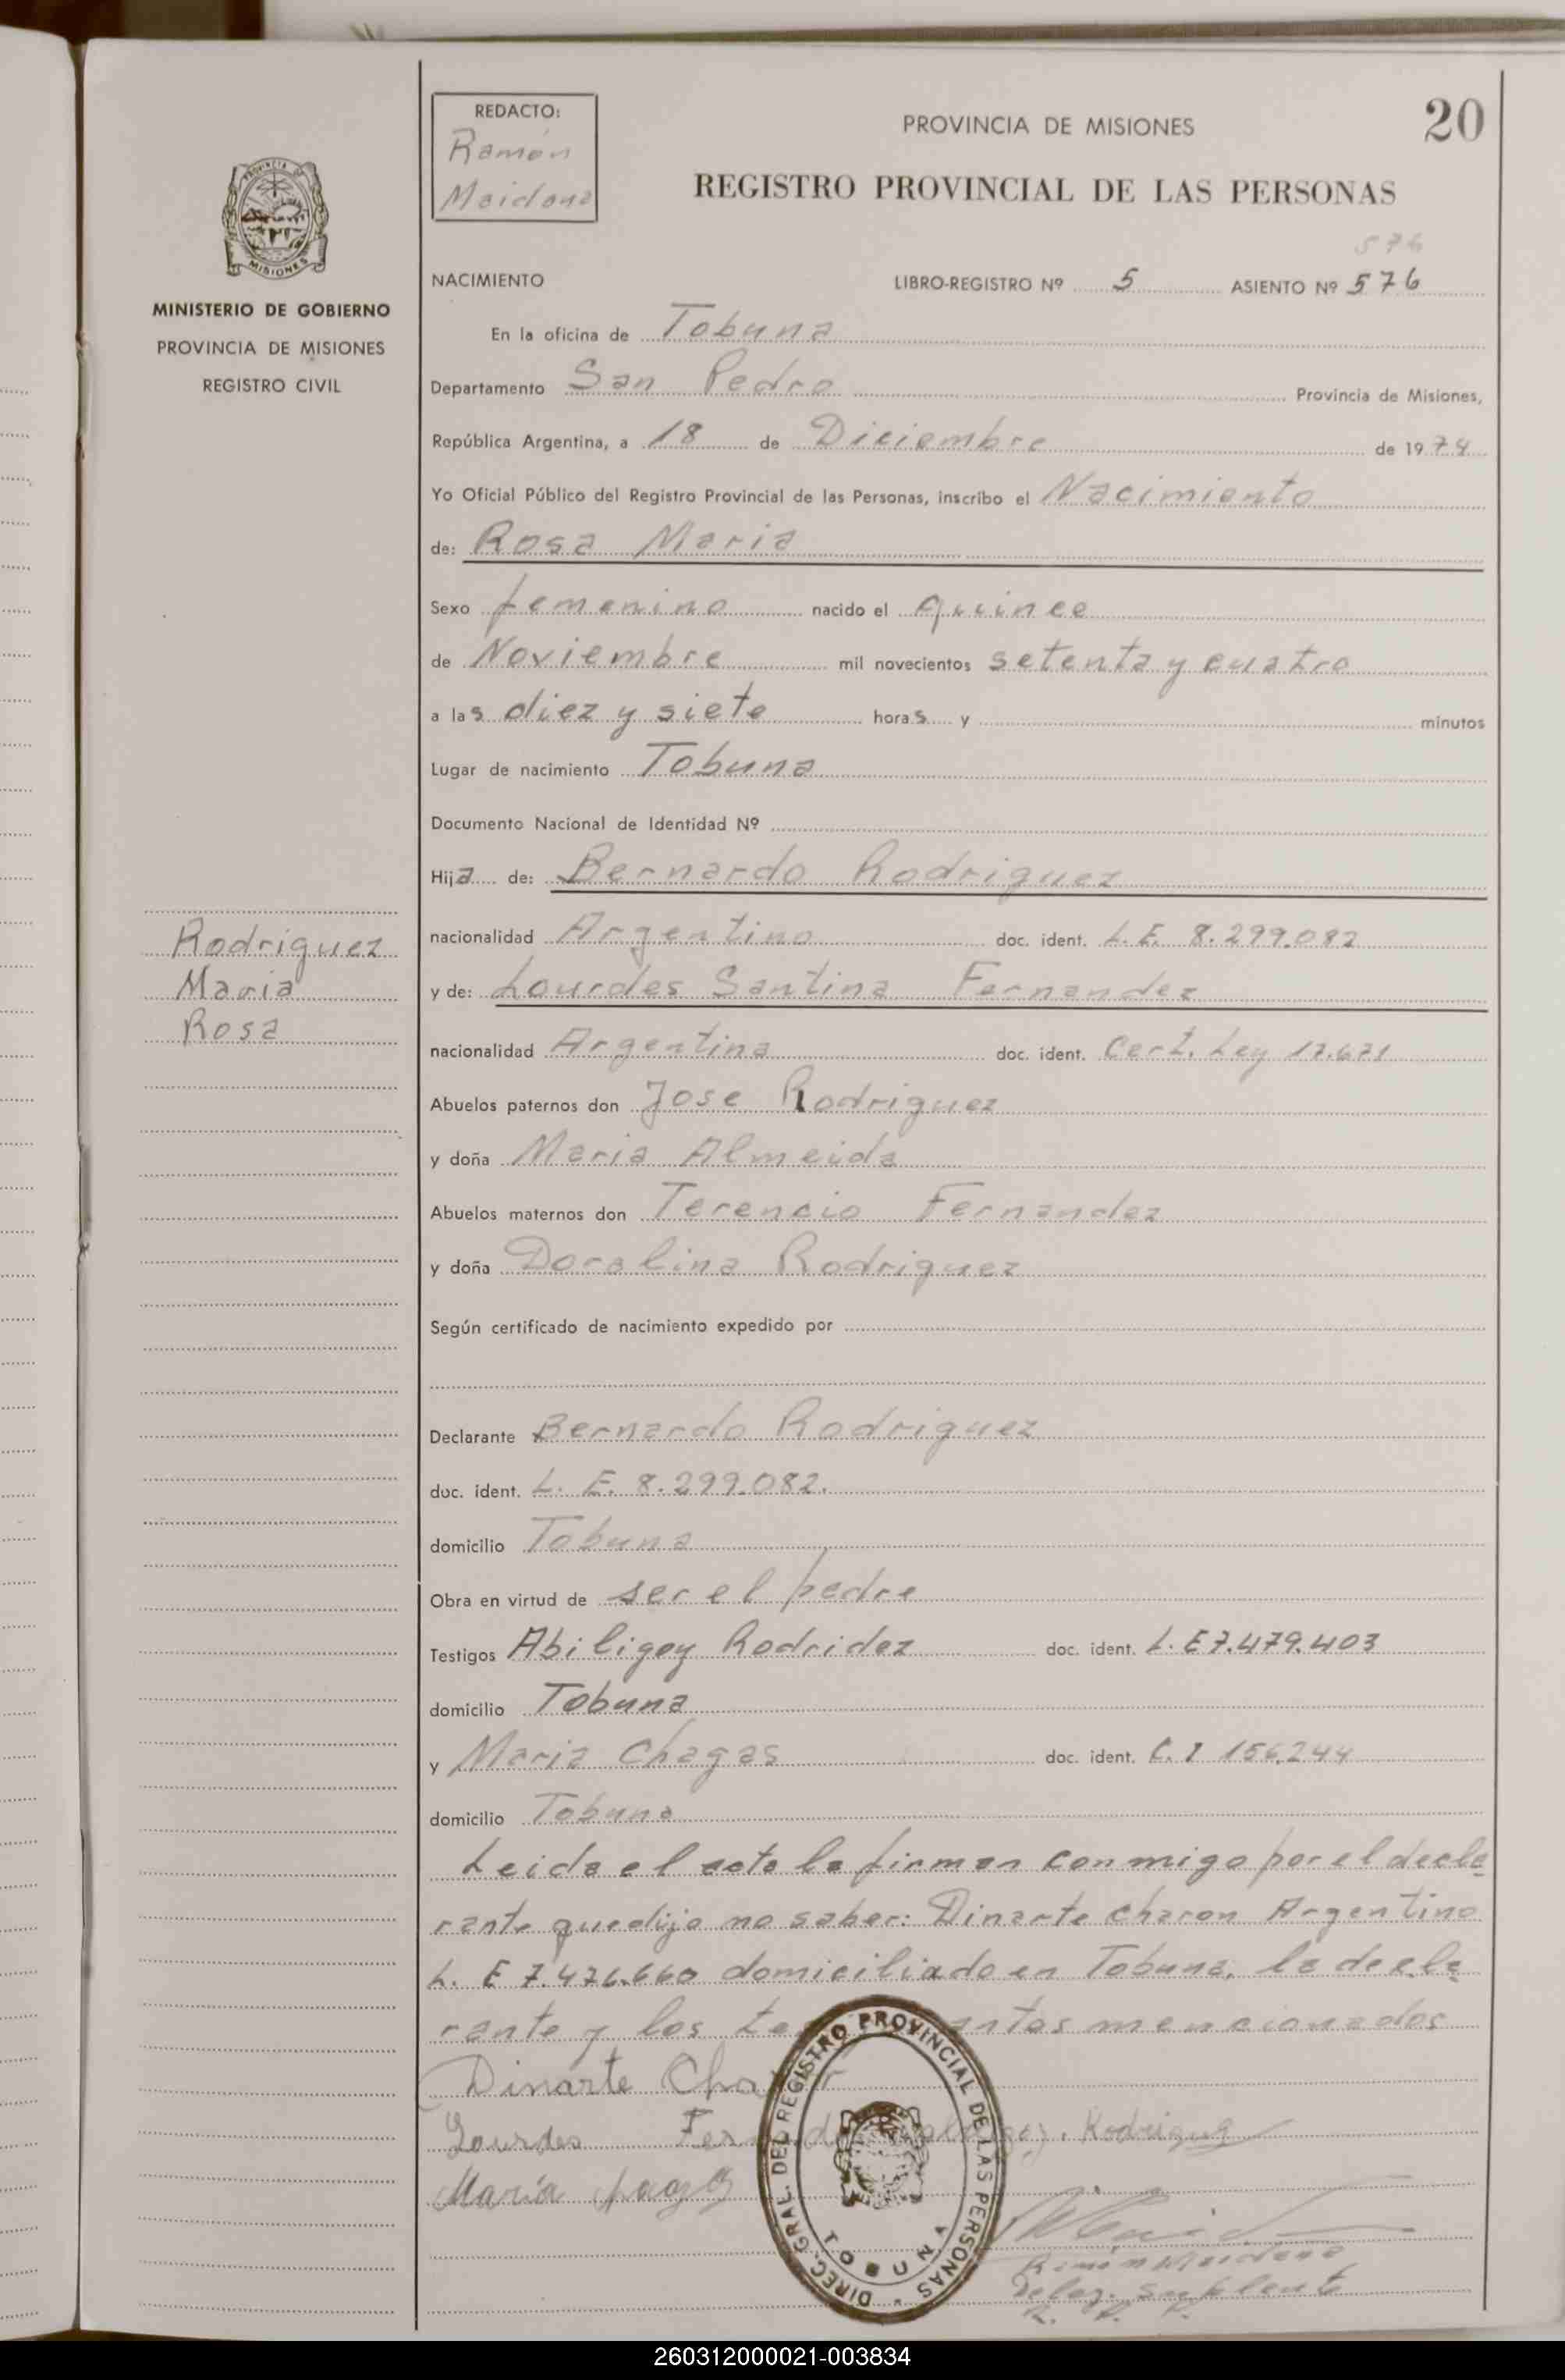 REDACTO:
Ramón
Maidana
PROVINCIA DE MISIONES
20
REGISTRO PROVINCIAL DE LAS PERSONAS
576
PROVINCIA DE MISIONES
MISIONES
MINISTERIO DE GOBIERNO
PROVINCIA DE MISIONES
REGISTRO CIVIL
NACIMIENTO LIBRO-REGISTRO Nº 5 ASIENTO Nº 576
En la oficina de Tobuna
Departamento San Pedro Provincia de Misiones,
República Argentina, a 18 de Diciembre de 1974
Yo Oficial Público del Registro Provincial de las Personas, inscribo el Nacimiento
de: Rosa Maria
Sexo femenino nacido el quince
de Noviembre mil novecientos setenta y cuatro
a las diez y siete horas y minutos
Lugar de nacimiento Tobuna
Documento Nacional de Identidad Nº
Hija de: Bernardo Rodriguez
Rodriguez
Maria
Rosa
nacionalidad Argentino doc. ident. L.E. 8.299.082
y de: Lourdes Santina Fernandez
nacionalidad Argentina doc. ident. Cert. Ley 17.671
Abuelos paternos don Jose Rodriguez
y doña Maria Almeida
Abuelos maternos don Terencio Fernandez
y doña Doralina Rodriguez
Según certificado de nacimiento expedido por
Declarante Bernardo Rodriguez
doc. ident. L. E. 8.299.082.
domicilio Tobuna
Obra en virtud de ser el padre
Testigos Abiligoy Rodridez doc. ident. L. E 7.479.403
domicilio Tobuna
y Maria Chagas doc. ident. C. I 156.244
domicilio Tobuna
Leida el acta la firman conmigo por el decla
rante que dijo no saber: Dinarte charon Argentino
L. E 7.476.660 domiciliado en Tobuna, la decla
rante y los antes mencionados
Dinarte
Lourdes Rodriguez
María
Ramón Maidana
Deleg. Suplente
R. P. P.
DIREC. GRAL. DEL REGISTRO PROVINCIAL DE LAS PERSONAS
TOBUNA
260312000021-003834